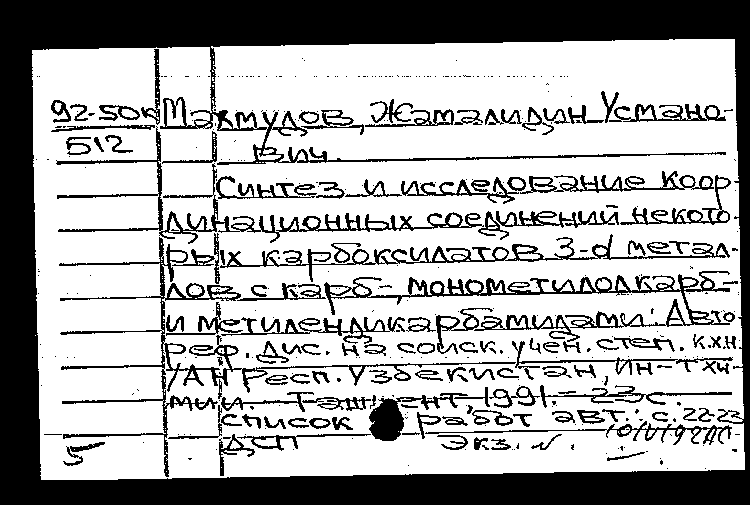 92-50к Махмудов, Жамалидин Усмано-
512 вич.
Синтез и исследование коор-
динационных соединений некото-
рых карбоксилатов 3-d метал-
лов с карб-, монометилолкарб-
и метилендикарбамидами: Авто-
реф. дис. на соиск. учен. степ. к.х.н.
/АН Респ. Узбекистан, Ин-т хи-
мии. Ташкент, 1991.- 23с.
список работ авт.: с.22-23
5 ДСП Экз. N.